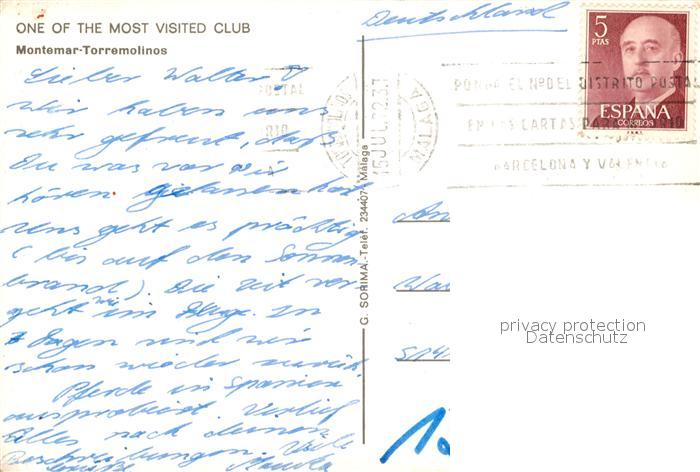 ONE OF THE MOST VISITED CLUB
Montemar-Torremolinos
Deutschland
Lieber Walter
wir haben uns
sehr gefreut, daß
Du was von Dir
hören gelassen hast
uns geht es prächtig
(bis auf den Sonnen
brand). Die Zeit ver
geht wie im Fluge. In
7 Tagen sind wir
schon wieder zurück.
Pferde in Spanien
ausprobiert. Verlief
alles nach deinen
Beschreibungen. Viele
Grüße
G. SORIMA.-Teléf. 234407 - Málaga
15 JUL 22.3
MALAGA
PONGA EL Nº DEL DISTRITO POSTAL
EN LAS CARTAS PARA MADRID
BARCELONA Y VALENCIA
5
PTAS
ESPAÑA
CORREOS
An
privacy protection
Datenschutz